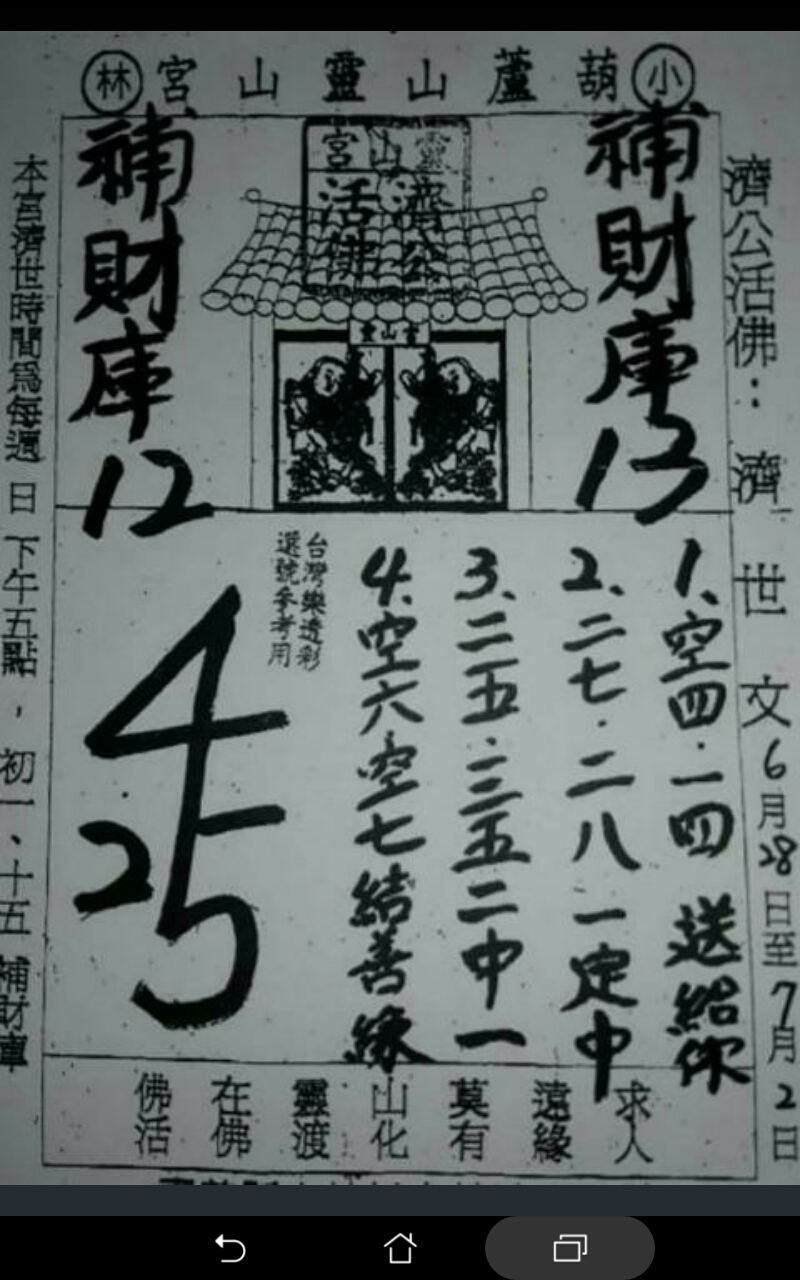 小林
葫蘆山靈山宮
濟公活佛：濟世文6月28日至7月2日
補財庫13
靈山宮
濟公活佛
靈山宮
補財庫12
1、空四·一四送給你
2、二七·二八一定中
3、二五·三五二中一
4、空六空七結善緣
台灣樂透彩
選號參考用
4
25
求人
遠緣
莫有
山化
靈渡
在佛
佛活
本宮濟世時間為每週日下午五點，初一、十五補財庫